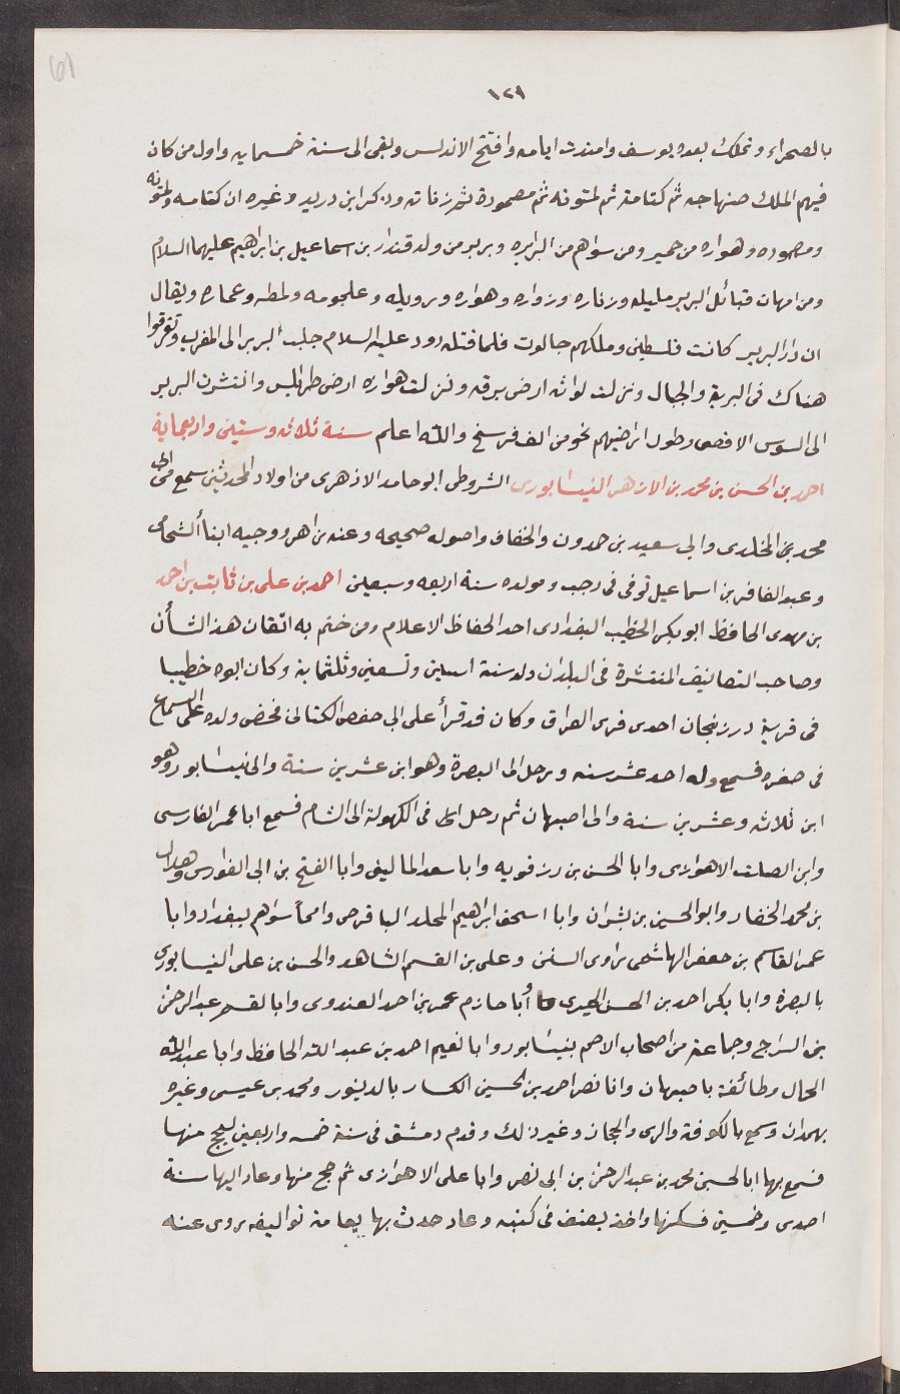 61
١٢٩
بالصحراء وتملك بعده يوسف وامتدت ايامه وافتتح الاندلس وبقى الى سنة خمسمايه واول من كان
فيهم الملك صنهاجه ثم كتامة ثم لمتونه ثم مصمودة ثم زناته وذكر ابن دريد وغيره ان كتامه ولمتونه
ومصموده وهواره من حمير ومن سواهم من البرابره وبربر من ولد قندار بن اسماعيل بن ابراهيم عليهما السلام
ومن امهات قبائل البربر مليله وزناره وزواره وهواره وزويله وعلجومه ولمطه وعماره ويقال
ان دار البربر كانت فلسطين وملكهم جالوت فلما قتله داود عليه السلام جلب البربر الى المغرب وتفرقوا
هناك فى البرية والجبال ونزلت لواثه ارض برقه ونزلت هواره ارض طرابلس وانتشرت البربر
الى السوس الاقصى وطول اراضيهم نحو من الف فرسخ والله اعلم سنة ثلاثه وستين واربعماية
احمد بن الحسن بن محمد بن الازهر النيسابورى الشروطى ابو حامد الازهرى من اولاد المحدثين سمع من ابى
محمد بن المخلدى وابي سعيد بن حمدون والخفاف واصوله صحيحه وعنه زاهر ووجيه ابنا الشحامى
وعبد الغافر بن اسماعيل توفى فى رجب ومولده سنة اربعه وسبعين احمد بن على بن ثابت بن احمد
بن مهدى الحافظ ابو بكر الخطيب البغدادى احد الحفاظ الاعلام ومن ختم به اتقان هذ الشأن
وصاحب التصانيف المنتشرة فى البلدان ولد سنة اسىىن وتسعين وثلثماية وكان ابوه خطيبا
فى قرية درزيجان احدى قرى العراق وكان قد قرأ على ابى حفص الكتانى فحض ولده على السماع
فى صغره فسمع وله احد عشر سنه ورحل الى البصرة وهو ابن عشرين سنة والى نيسابور وهو
ابن ثلاثه وعشرين سنة والى اصبهان ثم رحل فى الكهولة الى الشام فسمع ابا عمر الفارسى
وابن الصلت الاهوازى وابا الحسن بن رزقويه وابا سعد المالينى وابا الفتح بن ابى الفوارس وهلال
بن محمد الحفار وابو الحسين بن بشران وابا اسحق ابراهيم المخلد الباقرحى وامماً سواهم ببغداد وابا
عمر القاسم بن جعفر الهاشمى راوى السنن وعلى بن القسم الشاهد والحسن بن على النيسابورى
بالبصرة وابا بكر احمد بن الحسن الحيرى أبا حازم عمر بن احمد العبدوى وابا القسم عبد الرحمن
بن السراج وجماعة من اصحاب الاصم بنيسابور وابا نعيم احمد بن عبد الله الحافظ وابا عبد الله
الجمال وطائفة باصبهان وابا نصر احمد بن الحسين الكسار بالدينور ومحمد بن عيسى وغيره
بهمدان وسمع بالكوفة والرى والحجاز وغير ذلك وقدم دمشق فى سنة خمسه واربعين ليحج منها
فسمع بها ابا الحسن محمد بن عبد الرحمن بن ابى نصر وابا على الاهوازى ثم حج منها وعاد اليها سنة
احدى وخمسين فسكنها واخذ يصنف فى كتبه وعاد حدث بها بعامة تواليفه روى عنه